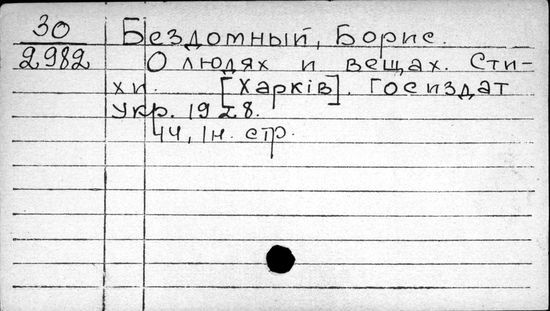 30
2982
Бездомный, Борис.
О людях и вещах. Сти-
хи. [Харків]. Госиздат
Укр. 1928.
44, 1н. стр.